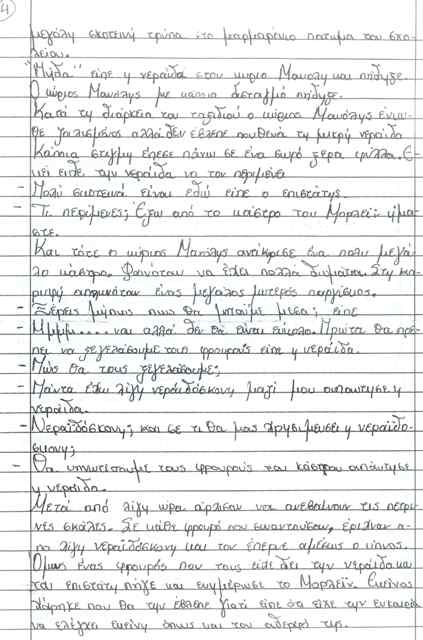 4
μεγάλη σκοτεινή τρύπα στο μαρμαρένιο πάτωμα του σχο-
λείου.
"Πήδα" είπε η νεράιδα στον κύριο Μανόλη και πήδηξε.
Ο κύριος Μανόλης με κάποιο δισταγμό πήδηξε.
Κατά τη διάρκεια του ταξιδιού ο κύριος Μανόλης ένιω-
θε ζαλισμένος αλλά δεν έβλεπε πουθενά τη μικρή νεράιδα
Κάποια στιγμή έπεσε πάνω σε ένα σωρό ξερά φύλλα. Ε-
κεί είδε την νεράιδα να τον περιμένει
- Πολύ σκοτεινά είναι εδώ είπε ο επιστάτης.
- Τι περίμενες; Έξω από το κάστρο του Μορλεϊν είμα-
στε.
Και τότε ο κύριος Μανόλης αντίκρισε ένα πολύ μεγά-
λο κάστρο. Φαινόταν να έχει πολλά δωμάτια. Στη κο-
ρυφή απλωνόταν ένας μεγάλος μυτερός πύργισκος.
- Ξέρεις μήπως πως θα μπούμε μέσα; είπε
- Μμμμ..... ναι αλλά δεν θα είναι εύκολο. Πρώτα θα πρέ-
πει να ξεγελάσουμε τους φρουρούς είπε η νεράιδα.
- Πώς θα τους ξεγελάσουμε;
- Πάντα έχω λίγη νεραϊδόσκονη μαζί μου απάντησε η
νεράιδα.
- Νεραϊδόσκονη; και σε τι θα μας χρησιμεύσει η νεραϊδό-
σκονη;
- Θα υπνωτίσουμε τους φρουρούς του κάστρου απάντησε
η νεράιδα.
Μετά από λίγη ώρα άρχισαν να ανεβαίνουν τις πέτρι-
νες σκάλες. Σε κάθε φρουρό που συναντούσαν, έριχναν α-
πό λίγη νεραϊδόσκονη και τον έπερνε αμέσως ο ύπνος.
Όμως ένας φρουρός που τους είχε δει την νεράιδα και
τον επιστάτη πήγε και ενημέρωσε το Μορλεϊν. Εκείνος
χάρηκε που θα την έβλεπε γιατί είπε ότι είχε την ευκαιρία
να ελέγχει εκείνη όπως και τον αδερφό της.